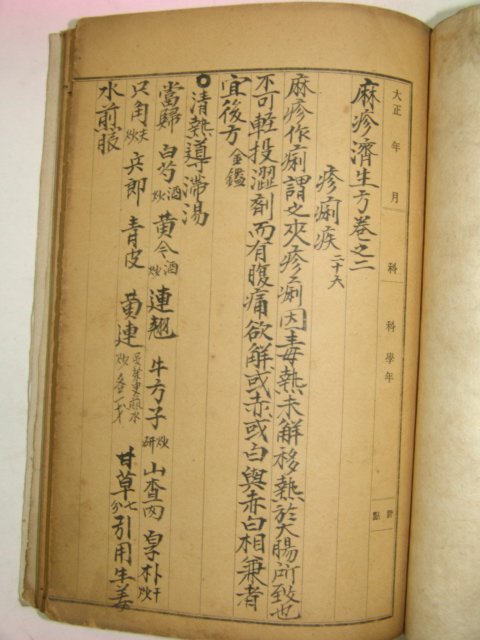 大正 年 月 科 科學年 計 點
麻疹濟生方卷之二
疹痢疾 二十六
麻疹作痢謂之夾疹痢因毒熱未解移熱於大腸所致也
不可輕投澀劑而有腹痛欲解或赤或白與赤白相兼者
宜後方 金鑑
清熱導滯湯
當歸 白芍 酒炒 黃今 酒炒 連翹 牛方子 炒研 山查肉 厚朴 干炒
只角 炒 兵郎 靑皮 黃連 炒 甘草 七分 引用生姜
水煎服